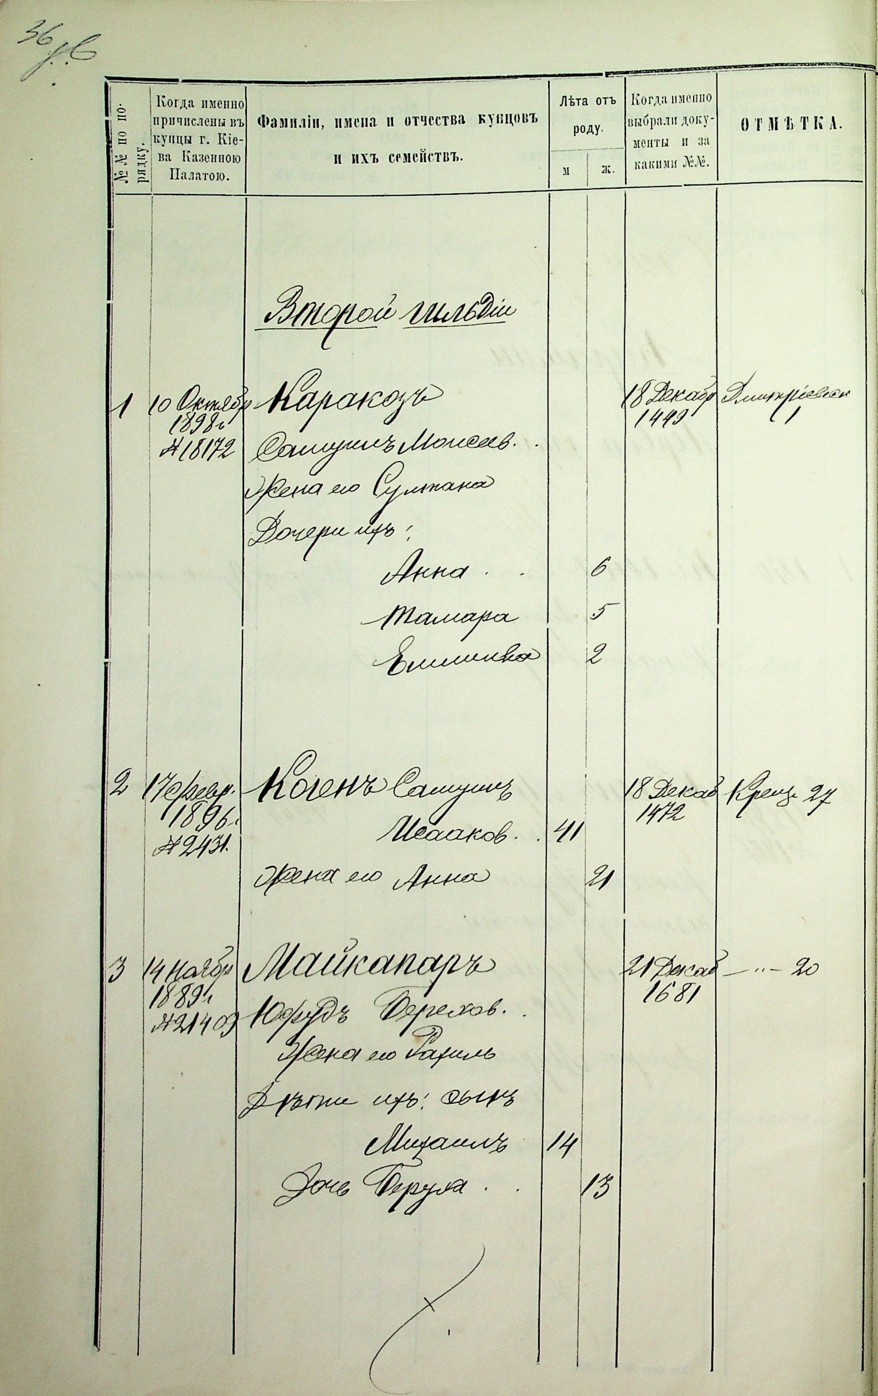 36
№№ по по-
рядку.
Когда именно
причислены въ
купцы г. Кіе-
ва Казенною
Палатою.
Фамиліи, имена и отчества купцовъ
и ихъ семействъ.
Лѣта отъ
роду.
м
ж.
Когда именно
выбрали доку-
менты и за
какими №№.
ОТМѢТКА.
Второй гильдіи
1 10 Октябр Каракозъ 18 Декабр Дмитріевская
1898 г. 1449 1
№18172 Самуилъ Моисеев.
Жена его Султана
Дочери ихъ:
Анна 6
Тамара 5
Эмилия 2
2 17 Февр. Когенъ Самуилъ 18 Декаб Крещ. 27
1896 г. Исааков. 41 1472
№2431.
Жена его Анна 21
3 14 Ноябр Майкапаръ 21 Декаб —"— 20
1889 г. 1681
№21409 Юфудъ Берехов.
Жена его Рахиль
Дѣти ихъ: сынъ
Михаилъ 14
Дочь Беруха 13